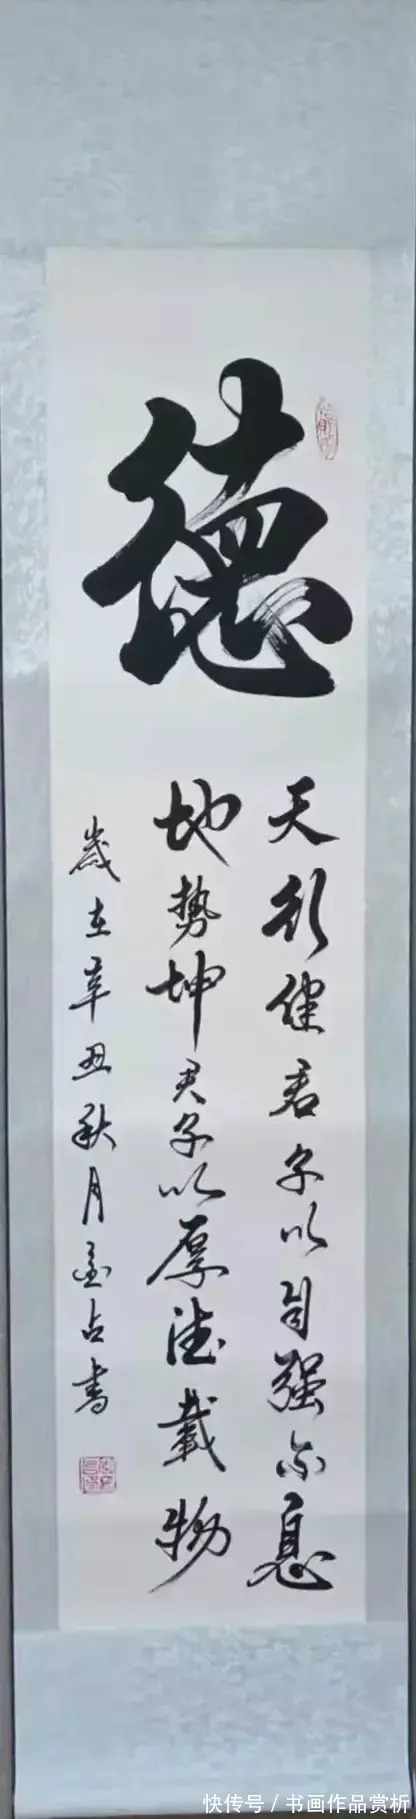 德
天行健君子以自强不息
地势坤君子以厚德載物
歲在辛丑秋月占書
快传号 / 书画作品赏析